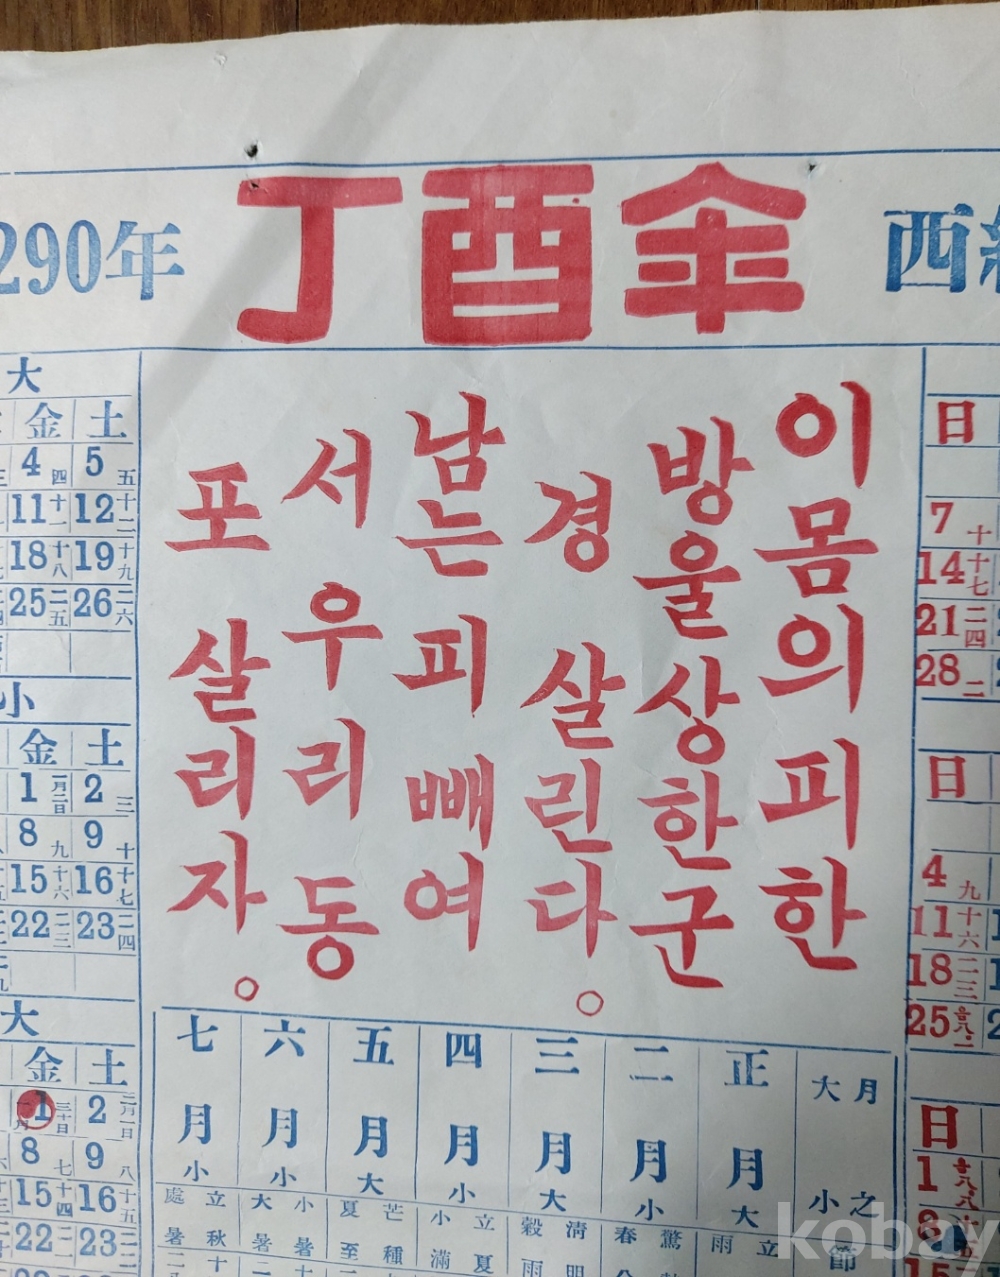 290年
丁酉年
西
이몸의피한
방울상한군
경 살린다。
남는 피 빼여
서 우 리 동
포 살리자。
大
金 土
4 四 5 五
11 十一 12 十二
18 十八 19 十九
25 二五 26 二六
小
金 土
1 2 三
8 九 9 十
15 十六 16 十七
22 二三 23 二四
大
金 土
1 三十日 2 二月一日
8 七 9 八
15 十四 16 十五
22 二一 23 二二
日
7 十
14 十七
21 二四
28 二
日
4 九
11 十六
18 二三
25
日
1
8
15
月之大小 節
正月大 立 雨
二月小 驚 春
三月大 清明 穀雨
四月小 立夏 小滿
五月大 芒種 夏至
六月小 小暑 大暑
七月小 立秋 處暑
kobay